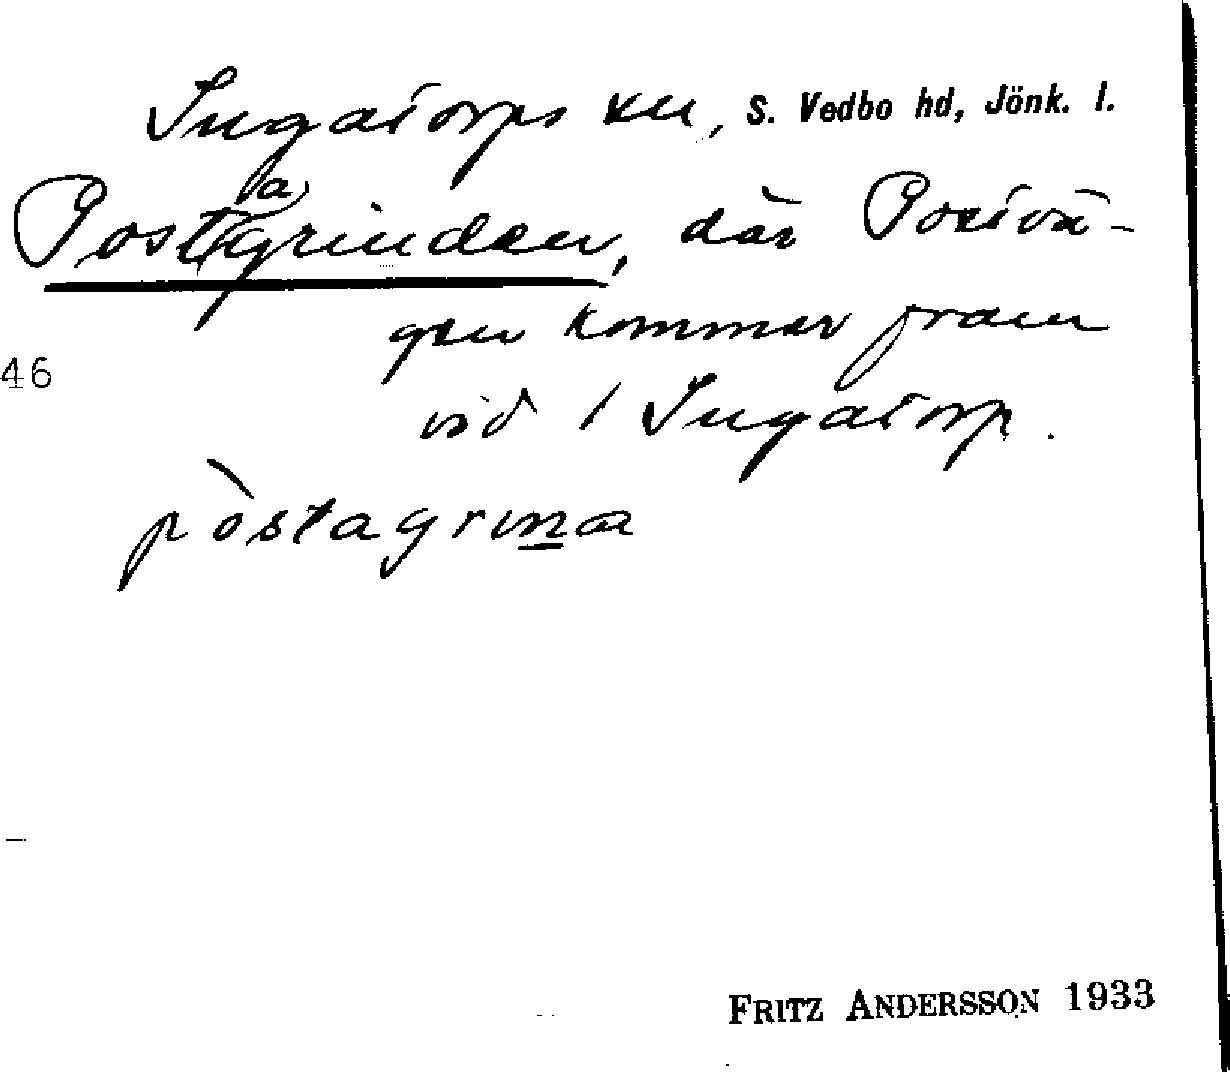 Ingatorps sn, S. Vedbo hd, Jönk. l.
Post(a)grinden, där Postvä-
gen kommer fram
46
vid / Ingatorp.
pòstagrına
FRITZ ANDERSSON 1933